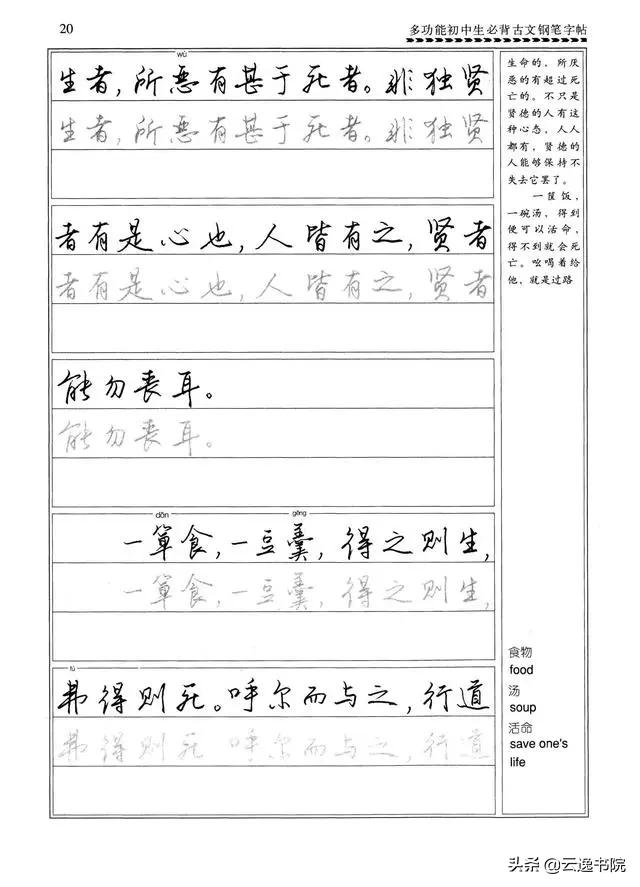 20
多功能初中生必背古文钢笔字帖
wù
生者，所恶有甚于死者。非独贤
生者，所恶有甚于死者。非独贤
者有是心也，人皆有之，贤者
者有是心也，人皆有之，贤者
能勿丧耳。
能勿丧耳。
dān gēng
一箪食，一豆羹，得之则生，
一箪食，一豆羹，得之则生，
fú
弗得则死。呼尔而与之，行道
弗得则死。呼尔而与之，行道
生命的，所厌
恶的有超过死
亡的。不只是
贤德的人有这
种心态，人人
都有，贤德的
人能够保持不
失去它罢了。
一筐饭，
一碗汤，得到
便可以活命，
得不到就会死
亡。吆喝着给
他，就是过路
食物
food
汤
soup
活命
save one's
life
头条 @云逸书院